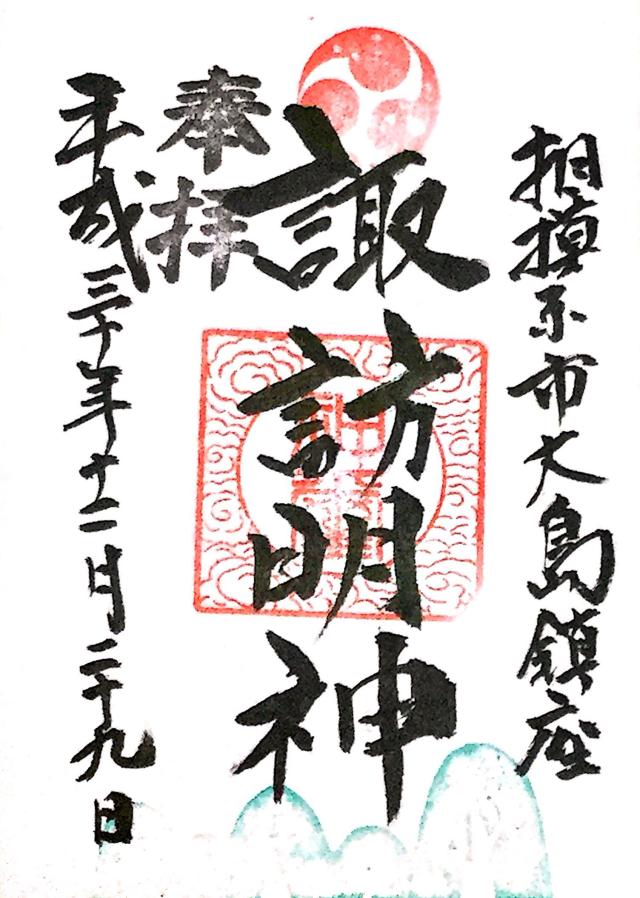 相摸原市大島鎮座
諏訪明神
奉拝
平成三十年十二月二十九日